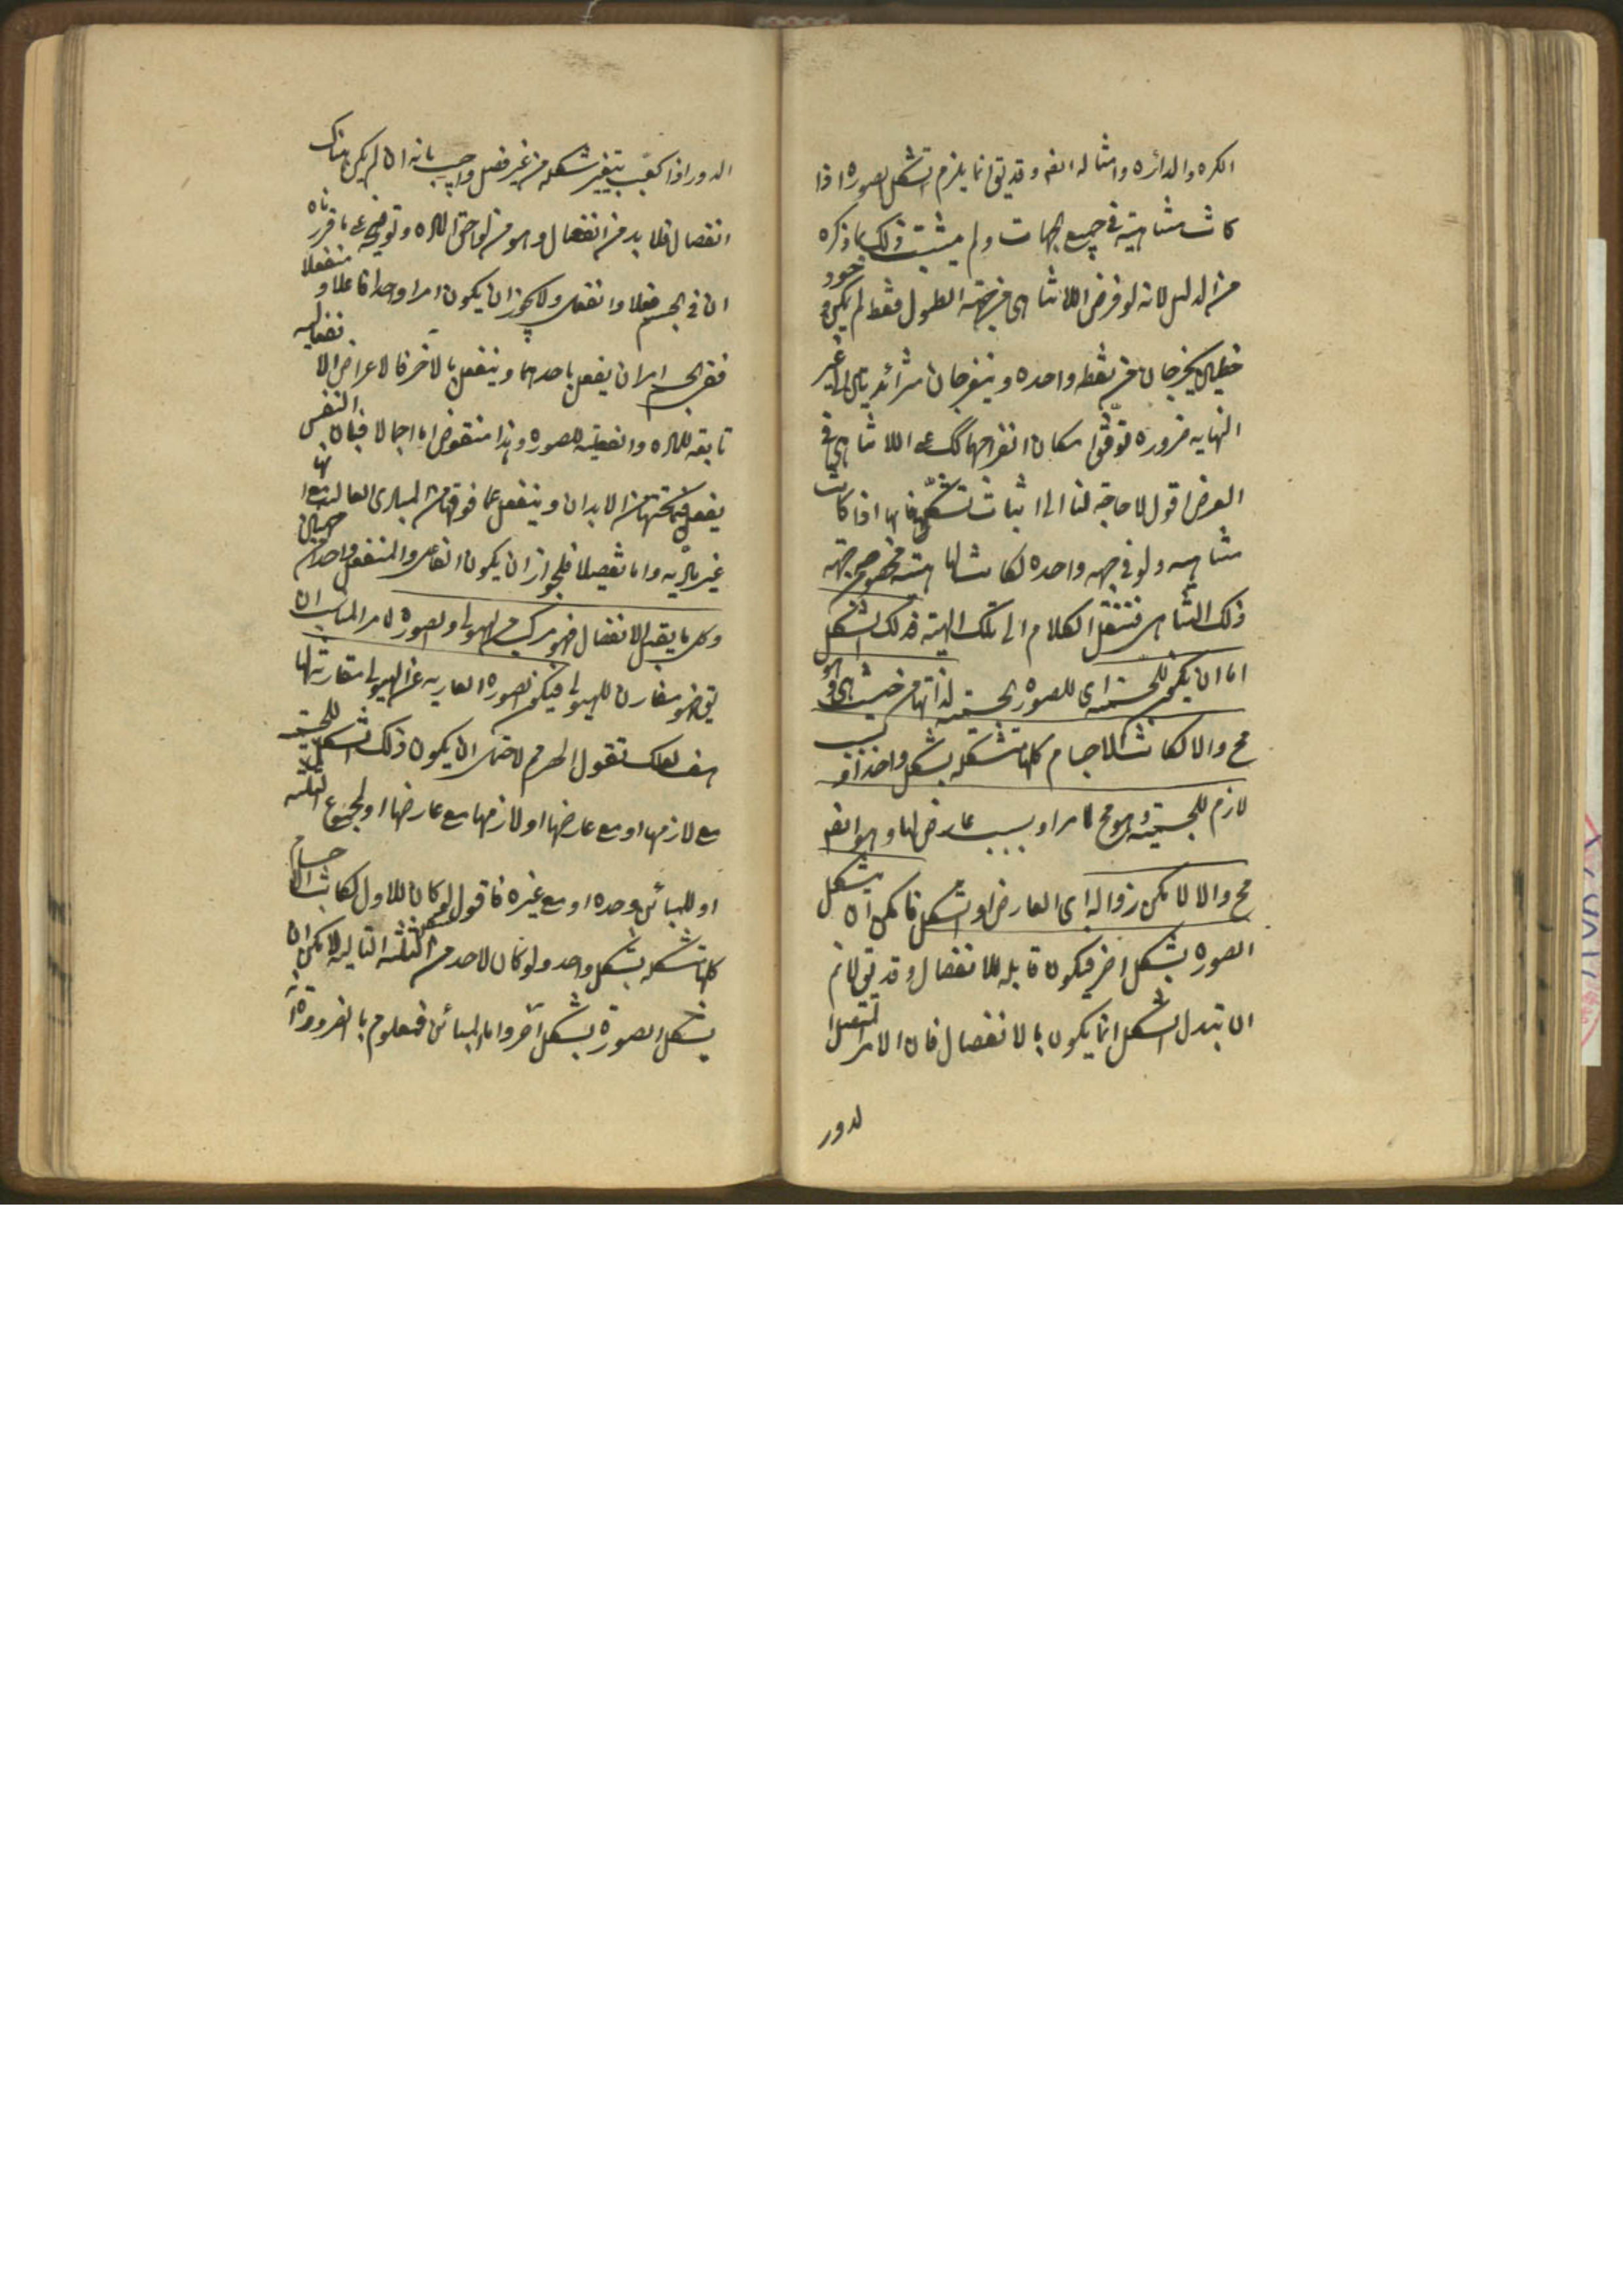 الكره والدائره وامثاله ايضه وقد يق انما يلزم تشكل الصوره اذا
كانت متناهية فى جميع الجهات ولم يثبت ذلك بما ذكره
من الدليل لانه لو فرض اللاتناهى فى جهة الطول فقط لم يكن وجود
خطين يخرجان من نقطه واحده وينفرجان متزائد يتاى الى غير
النهايه ضروره توقف امكان انفراجهما كك على اللاتناهى فى
العرض اقول لا حاجة لنا الى اثبات تشكل فانها اذا كانت
متناهيه ولو فى جهه واحده لكانت لها هيئة مخصوصه من جهة
ذلك التناهى فننقل الكلام الى تلك الهيئة فذلك الشكل
اما ان يكون للجسمية اى للصوره الجسمية لذاتها من حيث هى هى وهو
مح والا لكانت الاجسام كلها متشكله بشكل واحد او بسبب
لازم للجسمية وهو مح لما مر او بسبب عارض لها وهو ايضه
مح والا لامكن زواله اى العارض او الشكل فامكن ان يتشكل
الصوره بشكل اخر فيكون قابله للانفصال وقد يق لانم
ان تبدل الشكل انما يكون بالانفصال فان الامر المتصل
لدور
الدور اذا كعب يتغير شكله من غير فصل واجيب بانه ان لم يكن هناك
انفصال فلا بد من انفعال وهو من لواحق الماده وتوضيحه على ما قرروه
ان فى الجسم فعلا وانفعالا ولا يجوز ان يكون امرا واحدا فاعلا ومنفعلا
ففى الجسم امران يفعل باحدهما وينفعل بالآخر فالاعراض الانفعاليه
تابعة للماده والفعلية للصوره وهذا منقوض اما اجمالا فبان النفس
يفعل فيما تحتها من الابدان وينفعل عما فوقها من المبادى العاليه مع انها
غير ماديه واما تفصيلا فلجواز ان يكون الفاعل والمنفعل واحدا من جهتين
وكل ما يقبل الانفصال فهو مركب من الهيولى والصوره لما مر المناسب ان
يق فهو مقارن للهيولى فيكون الصوره العاريه عن الهيولى مقارنة لها
هف لعلك تقول الحصر مم لاحتمال ان يكون ذلك الشكل للجسمية
مع لازمها او مع عارضها او لازمها مع عارضها او لمجموع الثلثه
او للمبائن وحده او مع غيره فاقول لو كان للاول لكانت الاجسام
كلها متشكله بشكل واحد ولو كان لاحد من الثلثه التاليه لامكن ان
يتشكل الصورة بشكل آخر واما المبائن فمعلوم بالضرورة